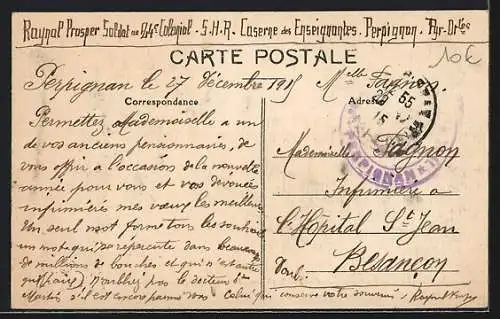 Raynal Prosper Soldat au 24e Colonial - S.H.R. - Caserne des Enseignantes. Perpignan. Pyr-Ort^les
10€
CARTE POSTALE
Correspondance
Adresse
Perpignan le 27 Décembre 1915
Permettez Mademoiselle a un
de vos anciens pensionnaires, de
vous offrir a l'occasion de la nouvelle
année pour vous et vos dévouées
infirmières mes vœux les meilleurs
Un seul mot forme tous les souhaits
un mot qui se répercute dans beaucoup
de millions de bouches et qui n'est autre
que (paix) N'oubliez pas le docteur St
Martin s'il est encore parmi vous Celui qui conserve votre souvenir. Raynal
Mlle Fagnon
Mademoiselle Fagnon
Infirmière a
l'Hôpital St Jean
Besançon
Doubs
PERPIGNAN